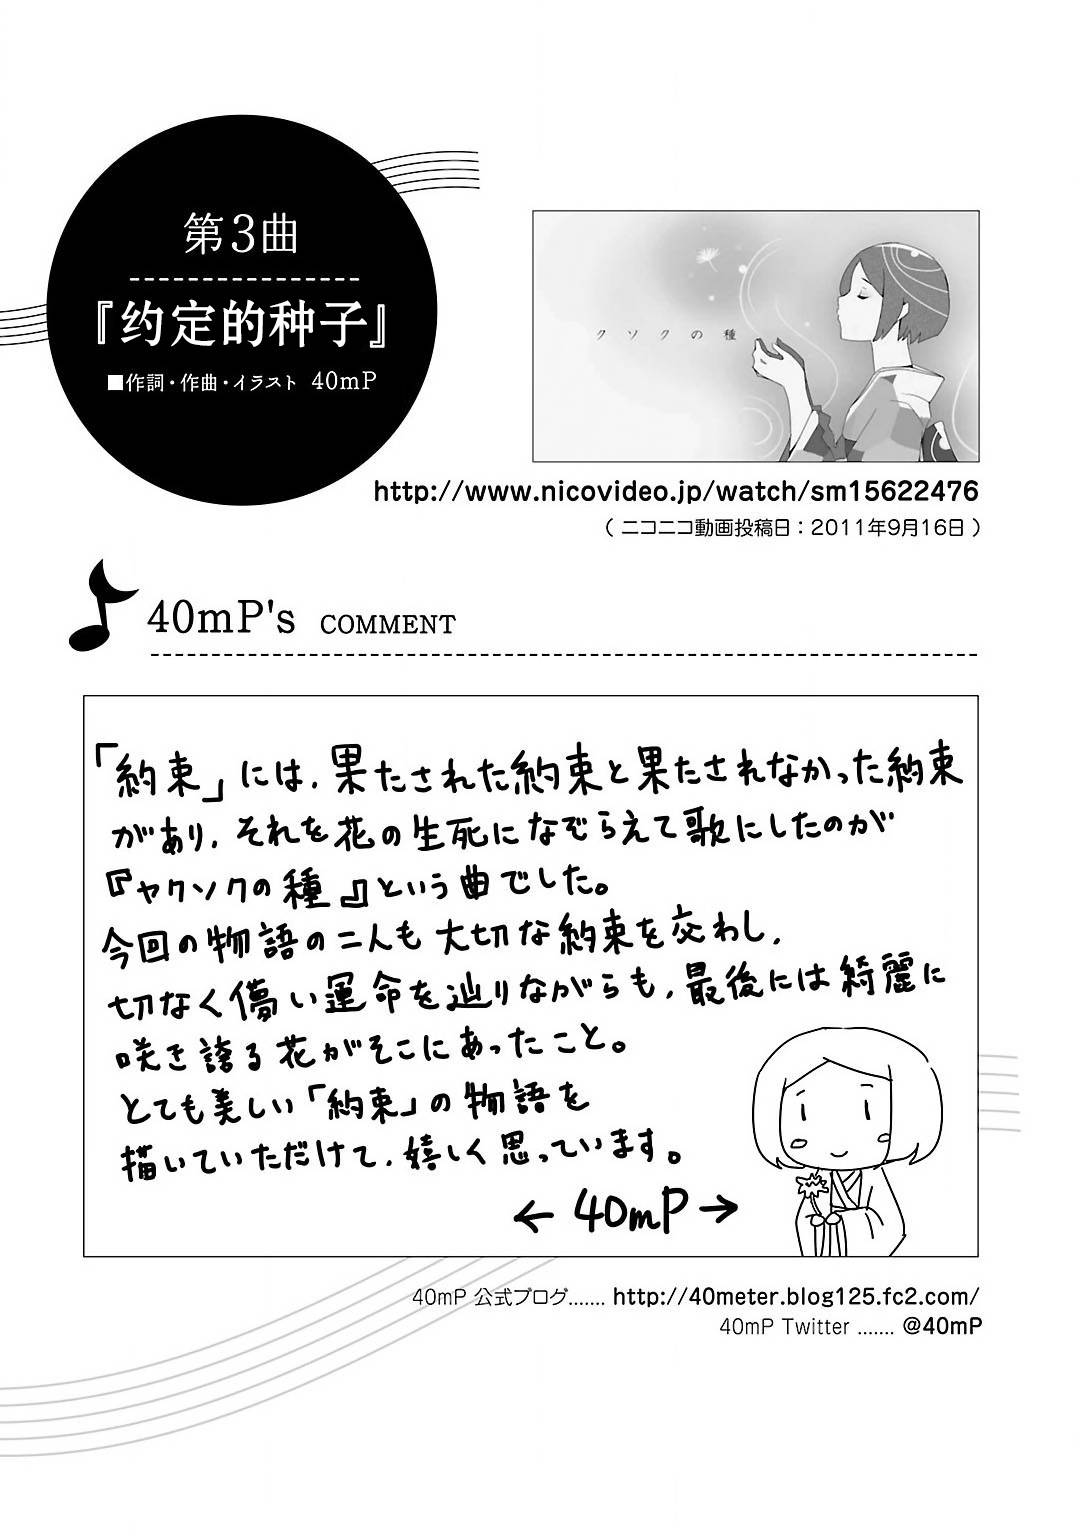 第3曲
『约定的种子』
■作詞・作曲・イラスト 40mP
クソクの種
http://www.nicovideo.jp/watch/sm15622476
( ニコニコ動画投稿日：2011年9月16日 )
40mP's COMMENT
「約束」には、果たされた約束と果たされなかった約束
があり、それを花の生死になぞらえて歌にしたのが
『ヤクソクの種』という曲でした。
今回の物語の二人も大切な約束を交わし、
切なく儚い運命を辿りながらも、最後には綺麗に
咲き誇る花がそこにあったこと。
とても美しい「約束」の物語を
描いていただけて、嬉しく思っています。
← 40mP →
40mP 公式ブログ....... http://40meter.blog125.fc2.com/
40mP Twitter ....... @40mP